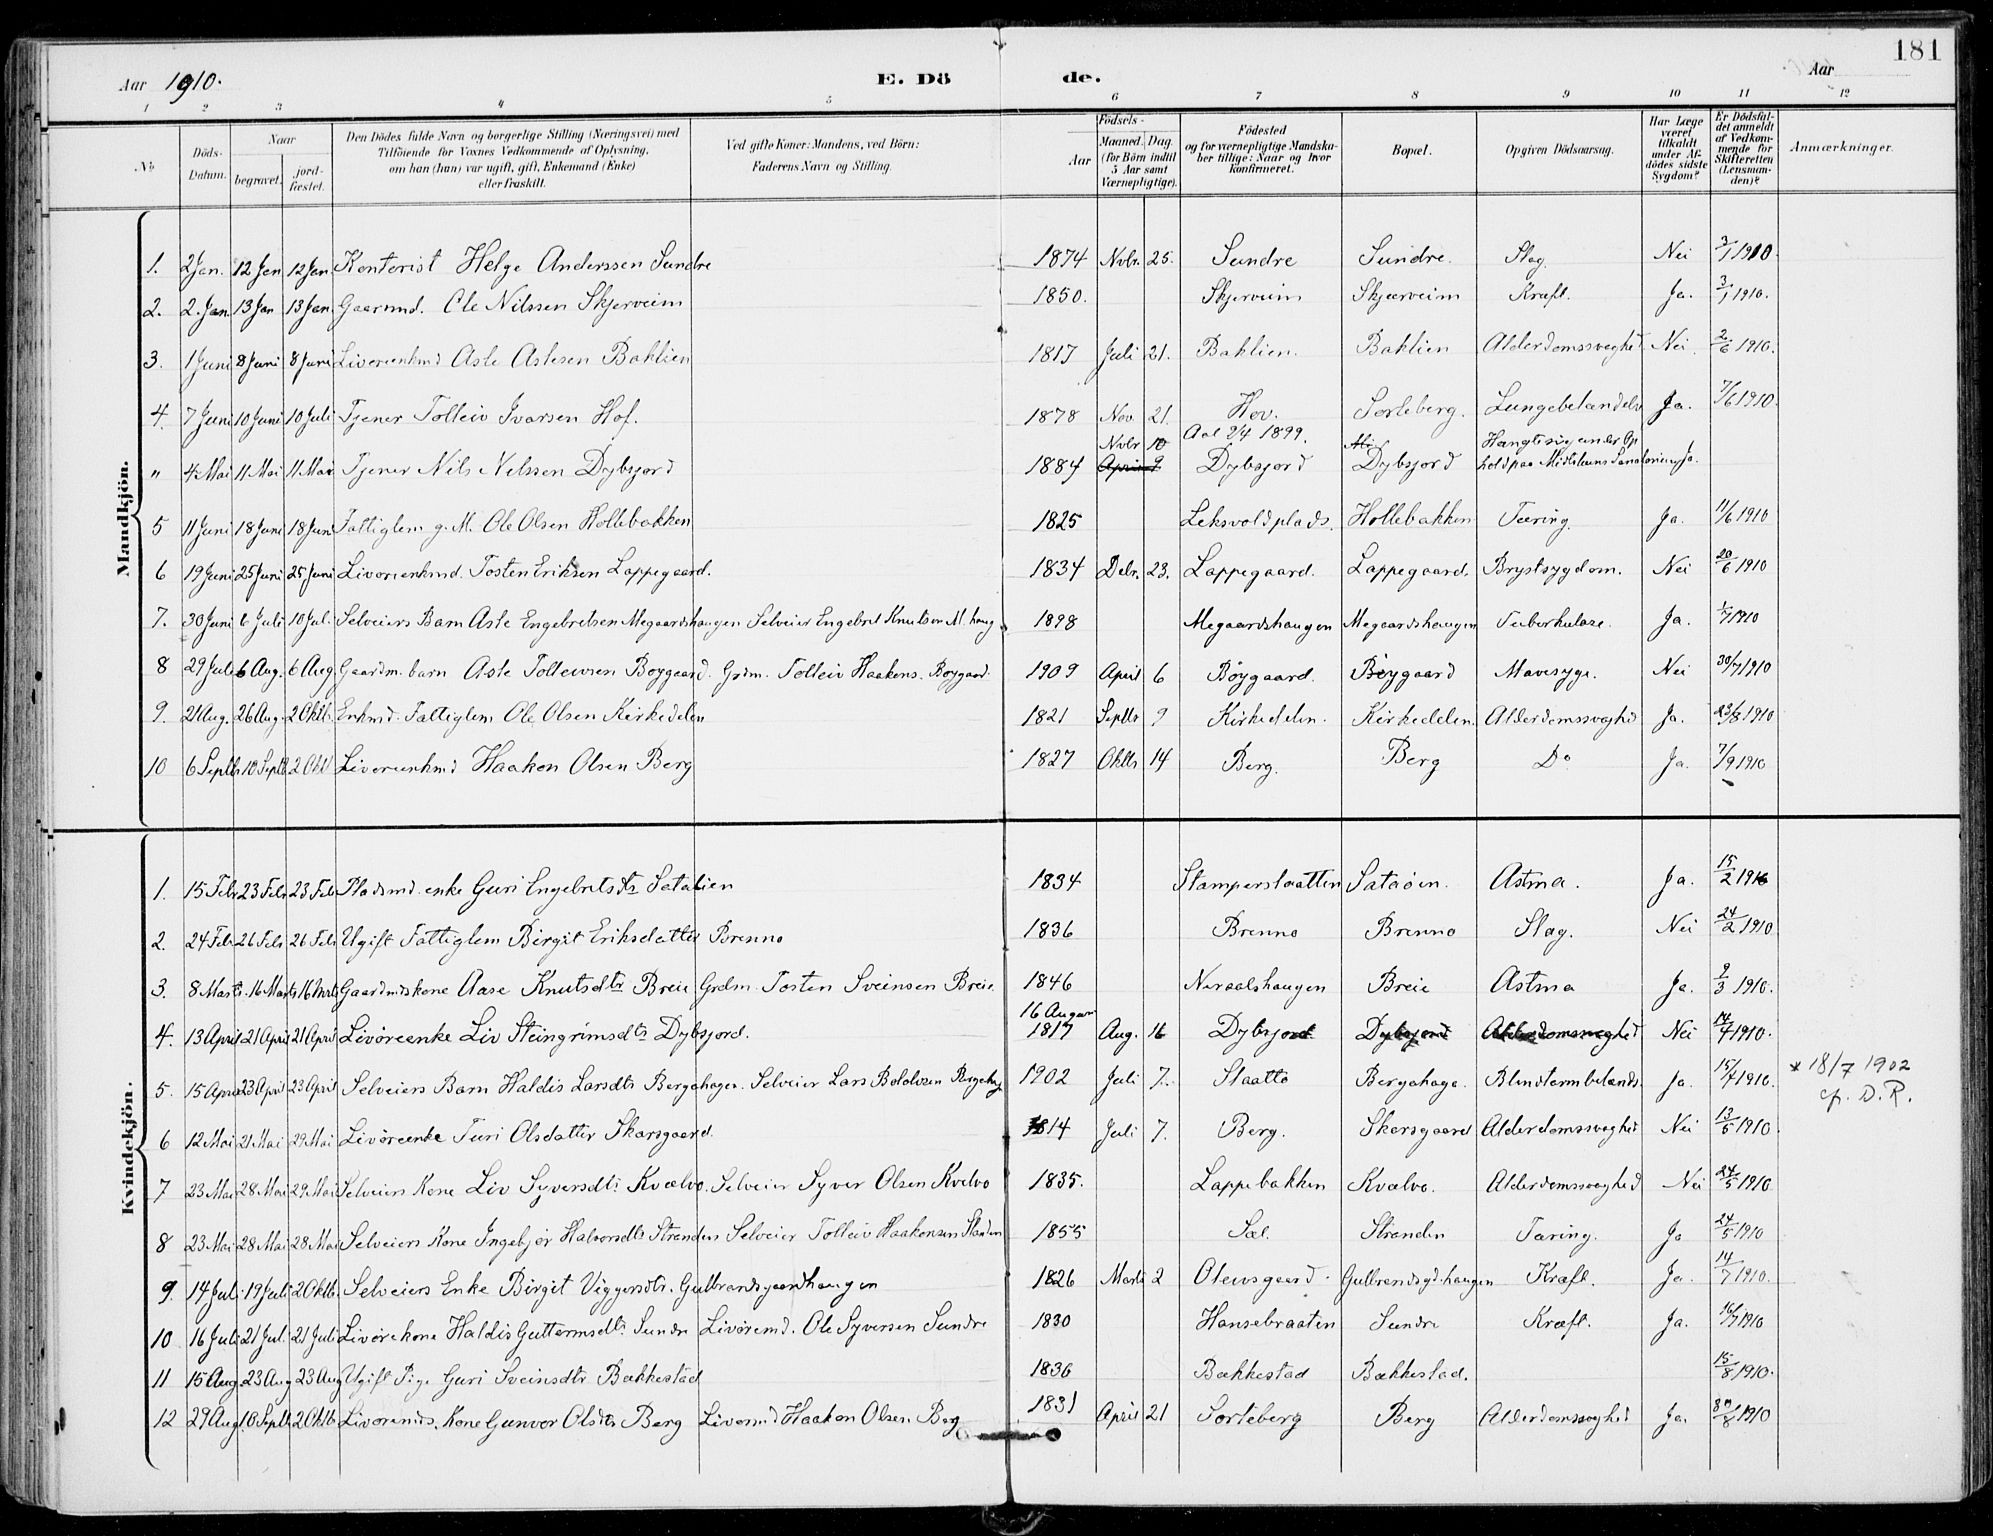 181
Aar 1910.
E. Döde.
Aar
1 2 3 4 5 6 7 8 9 10 11 12
No.
Döds-Datum.
Naar
begravet.
jordfæstet.
Den Dödes fulde Navn og borgerlige Stilling (Næringsvei) med Tilföiende for Voxnes Vedkommende af Oplysning, om han (hun) var ugift, gift, Enkemand (Enke) eller fraskilt.
Ved gifte Koner: Mandens, ved Börn: Faderens Navn og Stilling.
Födsels-
Aar
Maaned. Dag.
(for Börn indtil 5 Aar samt Værnepligtige).
Födested og for værnepligtige Mandskaber tillige: Naar og hvor konfirmeret.
Bopæl.
Opgiven Dödsaarsag.
Har Læge været tilkaldt under Afdödes sidste Sygdom?
Er Dödsfaldet anmeldt af Vedkommende for Skifteretten (Lensmanden)?
Anmærkninger.
Mandkjön.
1. 2 Jan. 12 Jan 12 Jan Kontorist Helge Anderssen Sundre 1874 Novbr. 25. Sundre Sundre. Slag. Nei 3/1 1910
2. 2. Jan 13 Jan 13 Jan Gaarmd. Ole Nilssen Skjerveim 1850. Skjerveim Skjærveim Kræft. Ja. 3/1 1910.
3. 1 Juni 8 Juni 8 Juni Livørienkmd Asle Aslesen Baklien 1817 Juli 21. Baklien. Baklien Alderdomssvaghed Nei. 2/6 1910.
4. 7 Juni 10 Juni 10 Juli Tjener Tolleiv Ivarsen Hof. 1878 Nov. 21. Hov. Sorteberg. Lungebetændelse Ja. 7/6 1910.
" 4 Mai 11 Mai 11 Mai Tjener Nils Nilssen Dybsjord 1884 Novbr 10 April 9 Aal 2/4 1899. Dybsjord Dybsjord Hængte sig under Ophold paa Mistlens Sanatorium Ja.
5 11 Juni 18 Juni 18 Juni Fattiglem g. M. Ole Olsen Hollebakken 1825 Leksvoldplads. Hollebakken Tæring. Ja. 11/6 1910
6 19 Juni 25 Juni 25 Juni Livørienkmd. Tosten Eriksen Loppegaard. 1834 Debr. 23. Lappegaard. Lappegaard. Brystsygdom. Nei 20/6 1910
7. 30 Juni 6 Juli 10 Jul. Selveiers Barn Asle Engebretsen Megaardshaugen Selveier Engebret Knutsen M.haug 1898 Megaardshaugen Megaardshaugen Tuberkulose. Ja. 1/7 1910
8 29 Juli 6 Aug. 6 Aug Gaardm. barn Asle Tolleivsen Bøygaard. Grdm. Tolleiv Haakons. Bøygaard. 1909 April 6 Bøygaard. Bøygaard Mavesyge. Nei 30/7 1910
9. 21 Aug. 26 Aug. 2 Oktb. Enkmd. Fattiglem Ole Olsen Kirkedelen 1821 Septbr 9 Kirkedelen. Kirkedelen. Alderdomssvaghed Ja. 23/8 1910
10 6 Septbr 10 Septb 2 Oktb Livørienkmd Haakon Olsen Berg 1827 Oktbr 14 Berg. Berg Do Ja. 7/9 1910
Kvindekjön.
1. 15 Febr 23 Febr 23 Feb Pladsmd. enke Guri Engebretsdtr Sataøien 1834 Stamperslaatten Sataøien. Astma. Ja. 15/2 1910
2. 24 Feb 26 Feb 26 Feb Ugift Fattiglem Birgit Eriksdatter Brenno 1836 Brenno Brenno Slag. Nei 24/2 1910
3. 8 Marts. 16 Marts 16 Marts Gaardmdskone Aase Knutsdtr Breie Grdm. Tosten Sveinsen Breie. 1846 Neraalshaugen Breie Astma Ja. 9/3 1910.
4. 13 April 21 April 21 April Livøreenke Liv Steingrimsdtr Dybsjord. 16 August 1817 Aug. 16 Dybsjord Dybsjord Alderdomssvaghed Nei 14/4 1910.
5. 15 April 23 April 23 April Selveiers Barn Haldis Larsdtr Bergehagen. Selveier Lars Boldvsen Bergehag 1902 Juli 7. Slaatto Bergehage. Blindtarmbetænds. Ja. 15/4 1910. * 18/7 1902 cf. D.P.
6 12 Mai 21 Mai 29 Mai Livøreenke Turi Olsdatter Skarsgaard. 1814 Juli 7. Berg. Skarsgaard Alderdomssvaghed Nei 13/5 1910
7 23 Mai 28 Mai 29 Mai Selveiers Kone Liv Syversdtr Kvælvo. Selveier Syver Olsen Kvelvo 1835. Lappebakken Kvælvo. Alderdomssvaghed Nei 24/5 1910
8 23 Mai 28 Mai 28 Mai Selveiers Kone Ingebjør Halvorsdtr Stranden Selveier Tolleiv Haakonsen Standen 1855 Sæl. Stranden Tæring. Ja 24/5 1910
9. 14 Juli 19 Juli 2 Oktb. Selveiers Enke Birgit Viggersdtr. Gulbrandsgaardhaugen 1826 Marts 2 Olevsgaard. Gulbrandsgd.haugen Kræft. Ja. 14/7 1910.
10 16 Juli 21 Jul. 21 Juli Livørekone Haldis Guttormsdtr Sundre Livøremd. Ole Syversen Sundre 1830 Hansebraaten Sundre Kræft. Ja. 16/7 1910
11 15 Aug 23 Aug 23 Aug Ugift Pige Guri Sveinsdtr Bækkestad 1836 Bækkestad Bækkestad. 15/8 1910.
12 29 Aug. 10 Septb 2 Oktb Livøremds. Kone Gunvor Olsdtr Berg Livøremd Haakon Olsen Berg 1831 April 21 Sorteberg Berg Alderdomssvaghed Ja. 30/8 1910